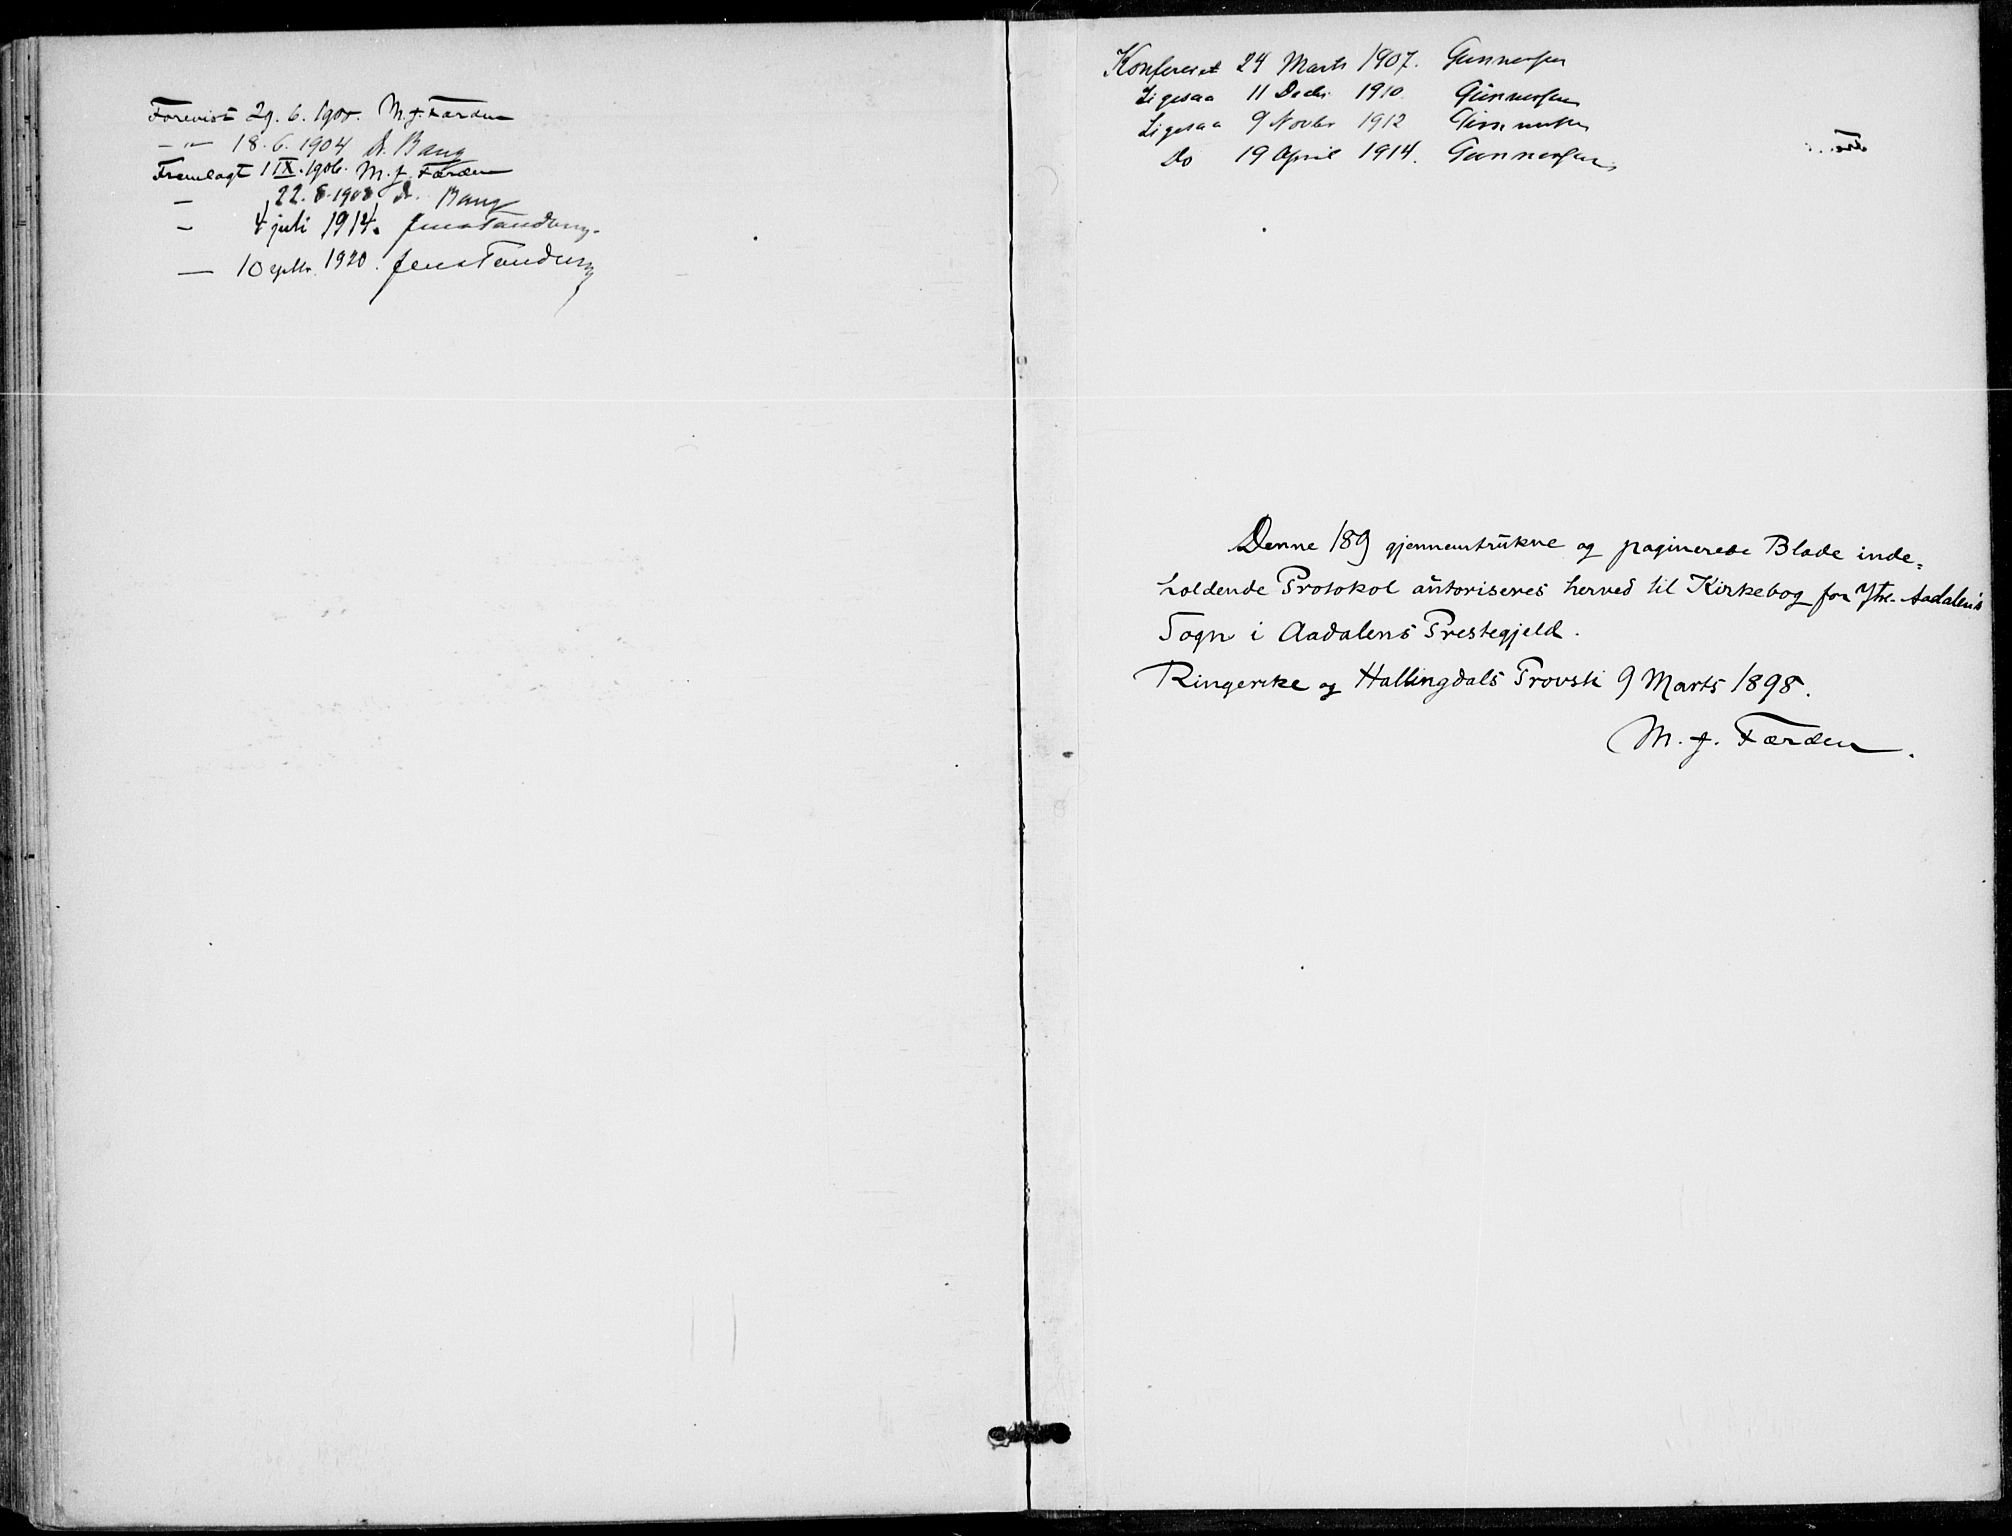 Forevist 29. 6. 1900. M. J. Færden
— " — 18. 6. 1904 A. Bang
Fremlagt 1 IX. 1906. M. J. Færden
— 22. 8. 1908 A. Bang
— 4 juli 1914. Jens Tandberg.
— 10 1920. Jens Tandberg
Konfereret 24 Marts 1907. Gunnersen
Ligesaa 11 Decbr. 1910. Gunnersen
Ligesaa 9 Novbr 1912 Gunnersen
Do 19 April 1914. Gunnersen
Denne 189 gjennemtrukne og paginerede Blade inde=
holdende Protokol autoriseres herved til Kirkebog for Ytre-Aadalens
Sogn i Aadalens Prestegjeld.
Ringerike og Hallingdals Provsti 9 Marts 1898.
M. J. Færden.